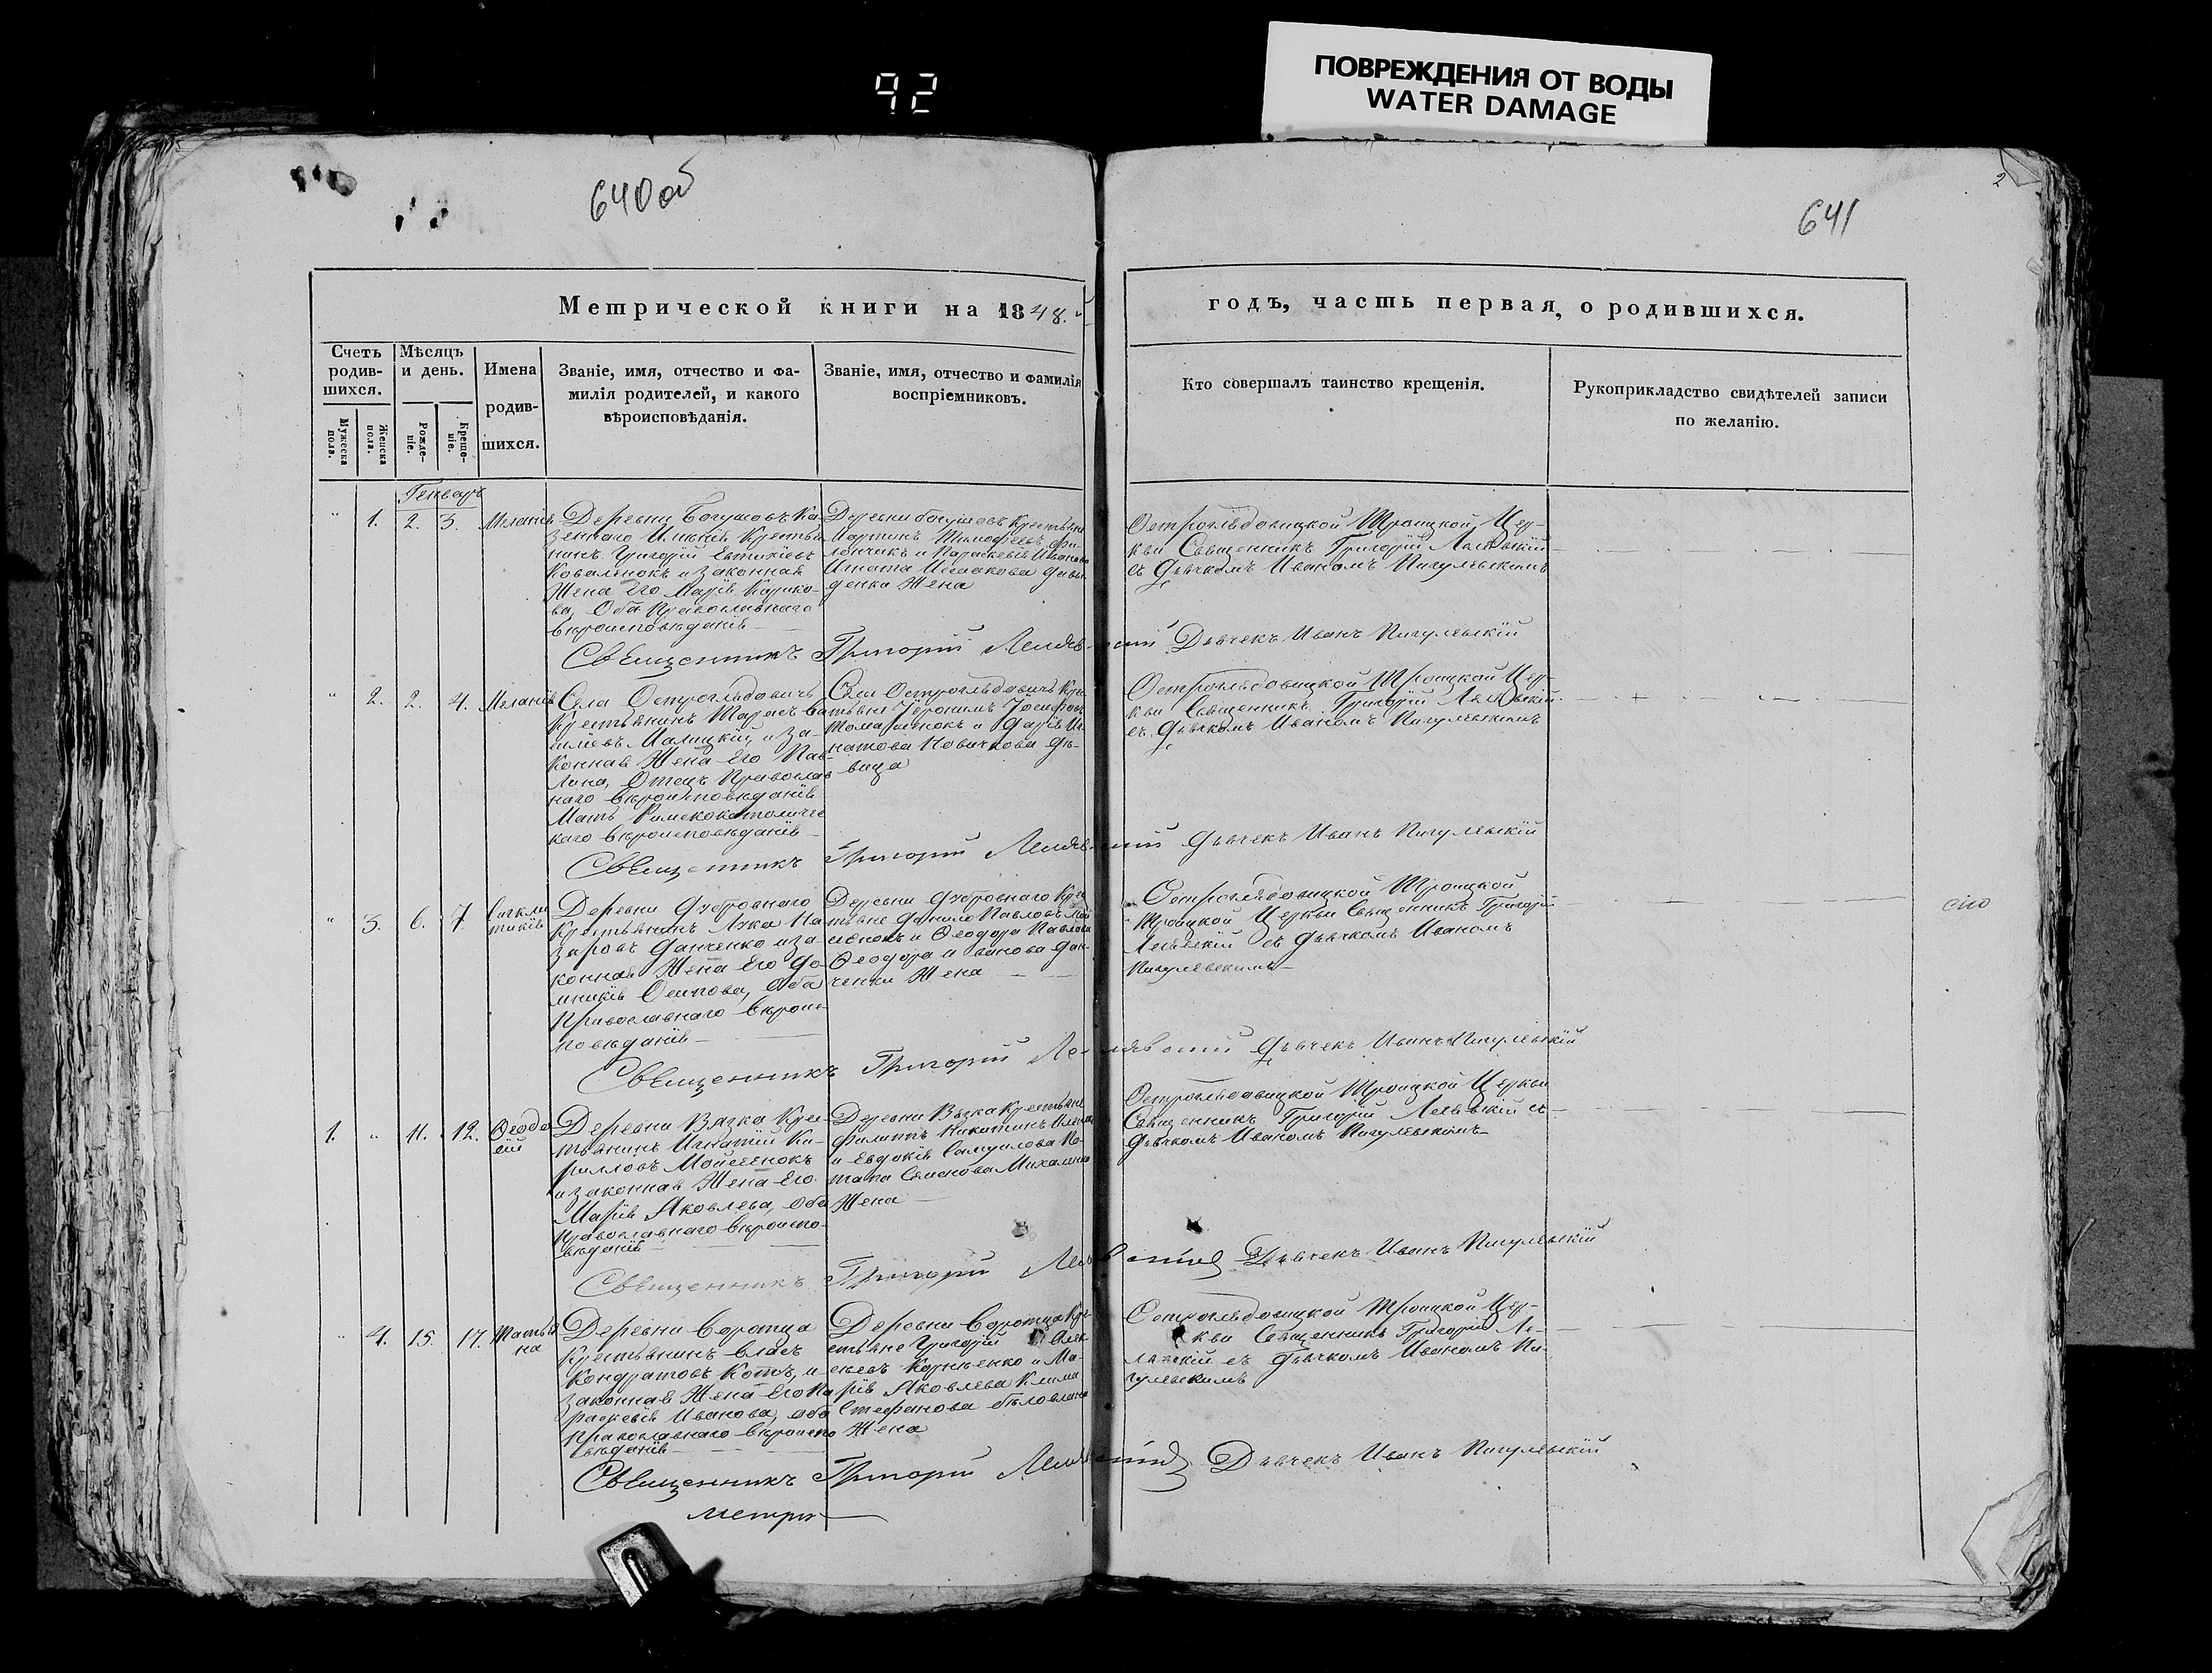 92
ПОВРЕЖДЕНИЯ ОТ ВОДЫ
WATER DAMAGE
640об
641
2
Метрической книги на 1848.
годъ, часть первая, о родившихся.
Счетъ
родив-
шихся.
Мужеска
пола.
Женска
пола.
Мѣсяцъ
и день.
Рожде-
ніе.
Креще-
ніе.
Имена
родив-
шихся.
Званіе, имя, отчество и фа-
милія родителей, и какого
вѣроисповѣданія.
Званіе, имя, отчество и фамилія
воспріемниковъ.
Кто совершалъ таинство крещенія.
Рукоприкладство свидѣтелей записи
по желанію.
Генварь
" 1. 2. 3. Меланія
Деревни Богушовъ Ка-
зеннаго Имѣнія Крестья
нинъ Григорій Евтихіевъ
Коваленокъ и законная
Жена Его Марія Карпо-
ва, Оба Православнаго
вѣроисповѣданія
Деревни Богушовъ Крестьяне
Мартинъ Тимофеевъ
и Параскевія Иванова
Игната Исаакова Давы
денка Жена
Островлядовицкой Троицкой Цер-
кви Священникъ Григорій
съ Дьячкомъ Иваномъ Пигулевскимъ
Священникъ Григорій Дьячекъ Иванъ Пигулевскій
" 2. 2. 4. Меланія
Села Островлядовичъ
Крестьянинъ Тарасъ Ва
силіевъ Малицкій, и за-
конная Жена Его Пав-
лина, Отецъ Православ
наго вѣроисповѣданія
Мать Римскокатоличес
каго вѣроисповѣданія
Села Островлядовичъ Кре
стьяне Іеронимъ Іосифовъ
Томашенокъ и Дарія Иг
натова Новичкова дѣ-
вица
Островлядовицкой Троицкой Цер-
кви Священникъ Григорій
съ Дьячкомъ Иваномъ Пигулевскимъ
Священникъ Григорій Дьячекъ Иванъ Пигулевскій
" 3. 6. 7. Сигкли
тикія
Деревни Дубровнаго
Крестьянинъ Лука На
заровъ Данченко и за-
конная Жена Его До-
мникія Осипова, Оба
Православнаго вѣроис-
повѣданія
Деревни Дубровнаго Кре
стьяне Данило Павловъ
и Ѳеодора Павлова
Ѳеодора Иванова Дан-
ченки Жена
Островлядовицкой Троицкой
Троицкой Церкви Священникъ Григорій
съ Дьячкомъ Иваномъ
Пигулевскимъ
Священникъ Григорій Дьячекъ Иванъ Пигулевскій
1. " 11. 12. Ѳеодо
сій
Деревни Вязка Крес-
тьянинъ Игнатій Ки-
рилловъ Мойсеенокъ
и законная Жена Его
Марія Яковлева, оба
Православнаго вѣроиспо-
вѣданія
Деревни Вязка Крестьяне
Филиппъ Никитинъ
и Евдокія Самуилова По-
тапа Семенова
Жена
Островлядовицкой Троицкой Церкви
Священникъ Григорій съ
Дьячкомъ Иваномъ Пигулевскимъ
Священникъ Григорій Дьячекъ Иванъ Пигулевскій
" 4. 15. 17. Татья
на
Деревни Воротца
Крестьянинъ Власъ
Кондратовъ Котъ, и
законная Жена Его Па
раскевія Иванова, оба
Православнаго вѣроиспо
вѣданія
Деревни Воротца Кре-
стьяне Григорій Алек
сѣевъ Корнѣенко и Ма-
рія Яковлева Клима
Стефанова
Жена
Островлядовицкой Троицкой Цер-
кви Священникъ Григорій
съ Дьячкомъ Иваномъ Пи-
гулевскимъ
Священникъ Григорій Дьячекъ Иванъ Пигулевскій